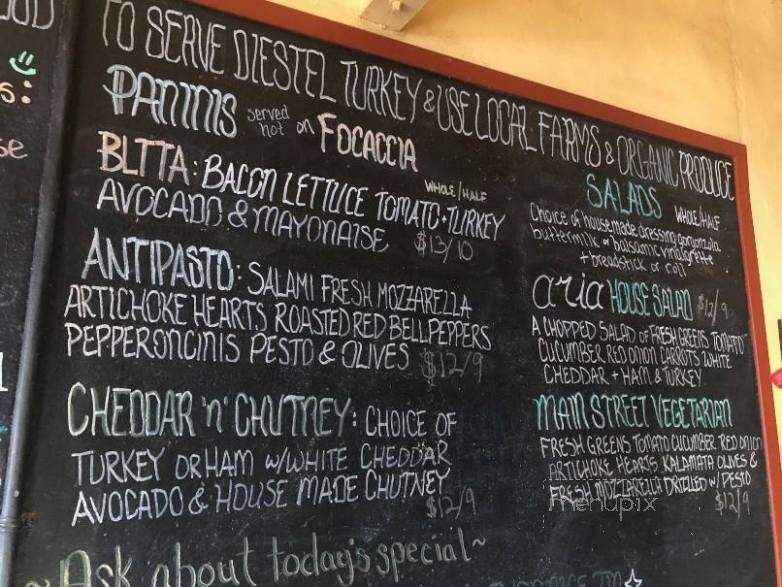 TO SERVE DIESTEL TURKEY & USE LOCAL FARMS & ORGANIC PRODUCE
PANINIS served hot on FOCACCIA
WHOLE/HALF
BLTTA: BACON LETTUCE TOMATO TURKEY
AVOCADO & MAYONAISE $13/10
ANTIPASTO: SALAMI FRESH MOZZARELLA
ARTICHOKE HEARTS ROASTED RED BELL PEPPERS
PEPPERONCINIS PESTO & OLIVES $12/9
CHEDDAR 'n' CHUTNEY: CHOICE OF
TURKEY OR HAM W/WHITE CHEDDAR
AVOCADO & HOUSE MADE CHUTNEY
$12/9
~Ask about today's special~
SALADS WHOLE/HALF
Choice of housemade dressing gorgonzola
buttermilk or balsamic vinaigrette
+ breadstick or roll
aria HOUSE SALAD $12/9
A CHOPPED SALAD OF FRESH GREENS TOMATO
CUCUMBER RED ONION CARROTS WHITE
CHEDDAR + HAM & TURKEY
MAIN STREET VEGETARIAN
FRESH GREENS TOMATO CUCUMBER RED ONION
ARTICHOKE HEARTS KALAMATA OLIVES &
FRESH MOZZARELLA DRIZZLED W/ PESTO
$12/9
menupix